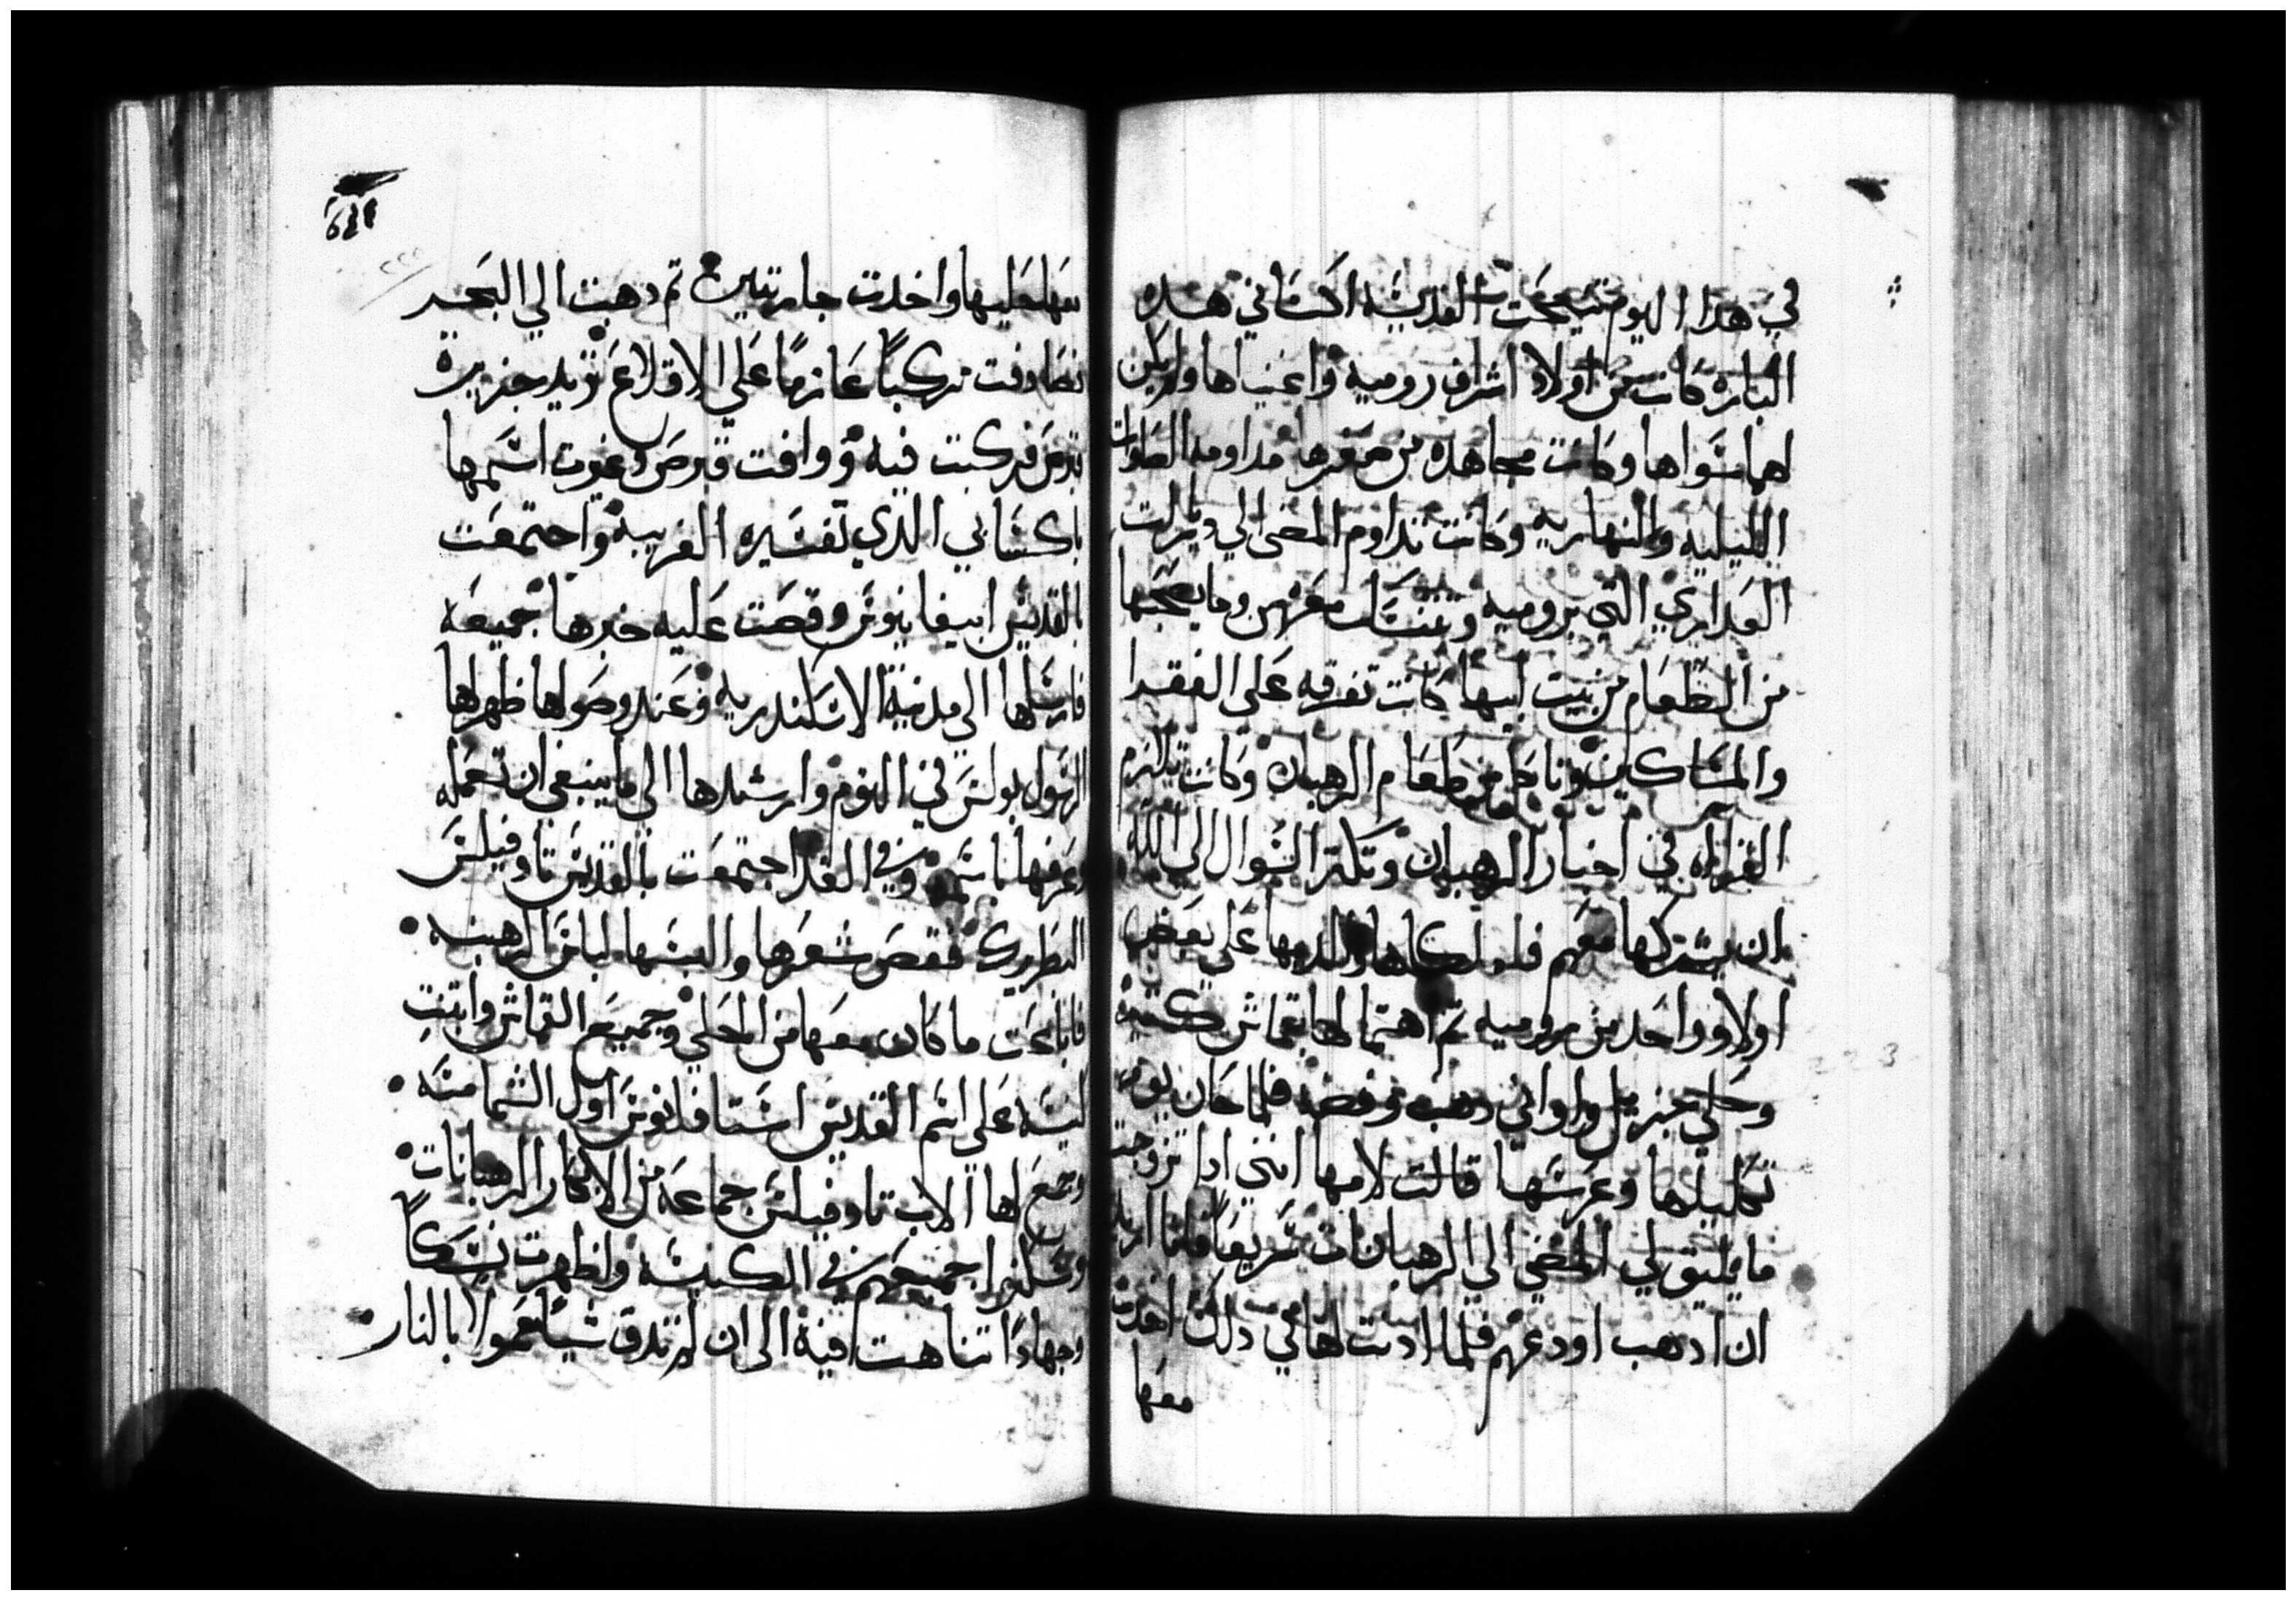 في هدا اليوم تنيحت القديسه اكساني هده
الباره كانت من اولاد اشراف روميه واغنياها ولم يكن
لهما سواها وكانت مجاهده من صغرها مداومه الصلوات
الليليه والنهاريه وكانت تداوم المضي الي ديارات
العداري التي بروميه وتتنسك معهن وما يصحبها
من الطعام من بيت ابيها كانت تفرقه علي الفقرا
والمساكين وتاكل من طعام الرهبان وكانت تلازم
القراه في اخبار الرهبان وتكتر السوال الي الله
ان يشركها معهم فلما املكاها والديها علي بعض
اولاد واحد من بروميه تم اهتما لها بقماش كتير
وحلي جزيل واواني دهب وفضه فلما كان يوم
تكليلها وعرسها قالت لامها انني ادا تزوجت
ما يليق لي المضي الي الرهبانات سريعا فانا اريد
ان ادهب اودعهم فلما ادنت لها في دلك اخدت
معها
معها حليها واخدت جاريتين تم دهبت الي البحر
فصادفت مركبا عازما علي الاقلاع تريد جزيرة
قبرص فركبت فيه ووافت قبرص وغيرت اسمها
باكساني الدي تفسيره الغريبه واجتمعت
بالقديس ابيفانيوس وقصت عليه خبرها جميعه
فارسلها الي مدينة الاسكندريه وعند وصولها ظهر لها
الرسول بولس في النوم وارشدها الي ما ينبغي ان تعمله
وعرفها باسمه وفي الغد اجتمعت بالقديس تاوفيلس
البطريرك فقص شعرها والبسها لباس الرهبنه
فاباعت ما كان معها من الحلي وجميع القماش وابتنت
كنيسه علي اسم القديس استافانوس اول الشمامسه
وجمع لها الاب تاوفيلس جماعه من الابكار الرهبانات
وسكنوا جميعهم في الكنيسه واظهرت نسكا
وجهادا تناهت فيه الي ان لم تدق شيا معمولا بالنار